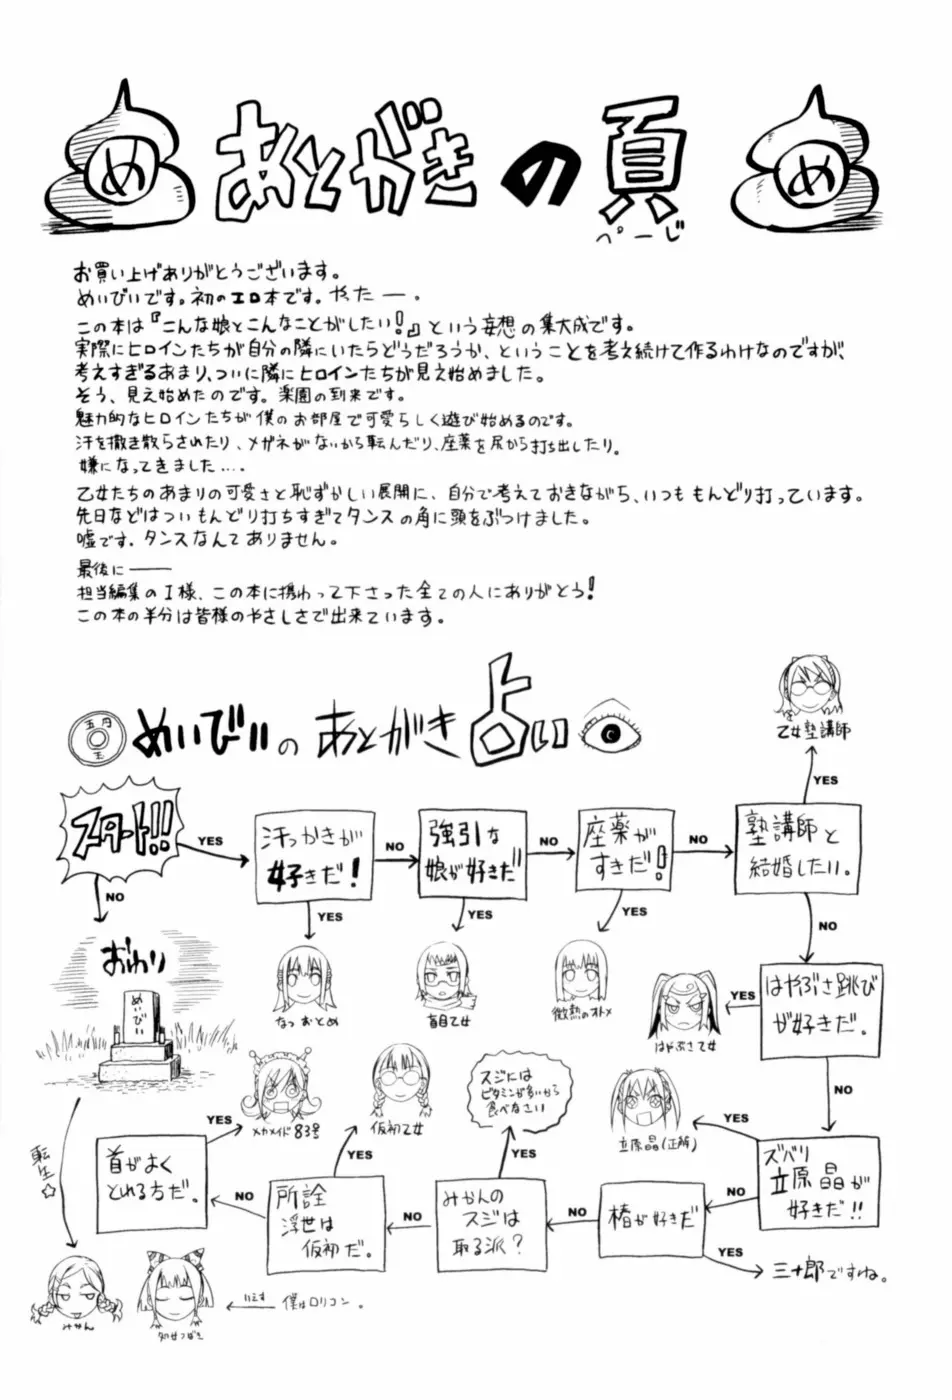 め
あとがきの頁
ぺーじ
め
お買い上げありがとうございます。
めいびいです。初のエロ本です。やったー。
この本は『こんな娘とこんなことがしたい!』という妄想の集大成です。
実際にヒロインたちが自分の隣にいたらどうだろうか、ということを考え続けて作るわけなのですが、
考えすぎるあまり、ついに隣にヒロインたちが見え始めました。
そう、見え始めたのです。楽園の到来です。
魅力的なヒロインたちが僕のお部屋で可愛らしく遊び始めるのです。
汗を撒き散らされたり、メガネがないから転んだり、座薬を尻から打ち出したり。
嫌になってきました…。
乙女たちのあまりの可愛さと恥ずかしい展開に、自分で考えておきながら、いつももんどり打っています。
先日などはついもんどり打ちすぎてタンスの角に頭をぶつけました。
嘘です。タンスなんてありません。
最後に――
担当編集のI様、この本に携わって下さった全ての人にありがとう!
この本の半分は皆様のやさしさで出来ています。
五円
玉
めいびいのあとがき占い
乙女塾講師
YES
スタート!!
YES
汗っかきが
好きだ!
NO
強引な
娘が好きだ
NO
座薬が
すきだ!
NO
塾講師と
結婚したい。
NO
YES
YES
YES
NO
おわり
めいびい
なつおとめ
盲目乙女
微熱のオトメ
はやぶさ乙女
YES
はやぶさ跳び
が好きだ。
NO
メカメイド83号
仮初乙女
スジには
ビタミンが多いから
食べなさい
立原晶(正解)
YES
ズバリ
立原晶が
好きだ!!
NO
椿が好きだ
YES
三十郎ですね。
NO
みかんの
スジは
取る派?
YES
NO
所詮
浮世は
仮初だ。
YES
NO
首がよく
とれる方だ。
YES
転生☆
みかん
処女つばき
いえす
僕はロリコン。